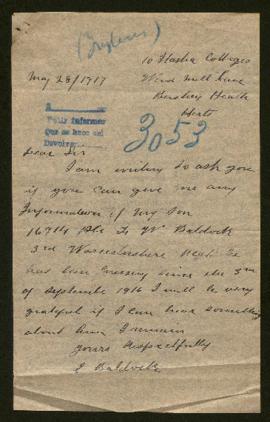 (Bruxelles)
10 Flasha Cottages
May 28/1917 Wind Mill Lane
Bushey Heath
Herts
Pour informer
que ce
3053
Dear Sir
I am writing to ask you
if you can give me any
Information of My Son
16714 Pte W Baldock
3rd Worcestershire Regt he
has been missing since the 3rd
of September 1916 I will be very
grateful if I can hear something
about him I remain
yours respectfully
E Baldock